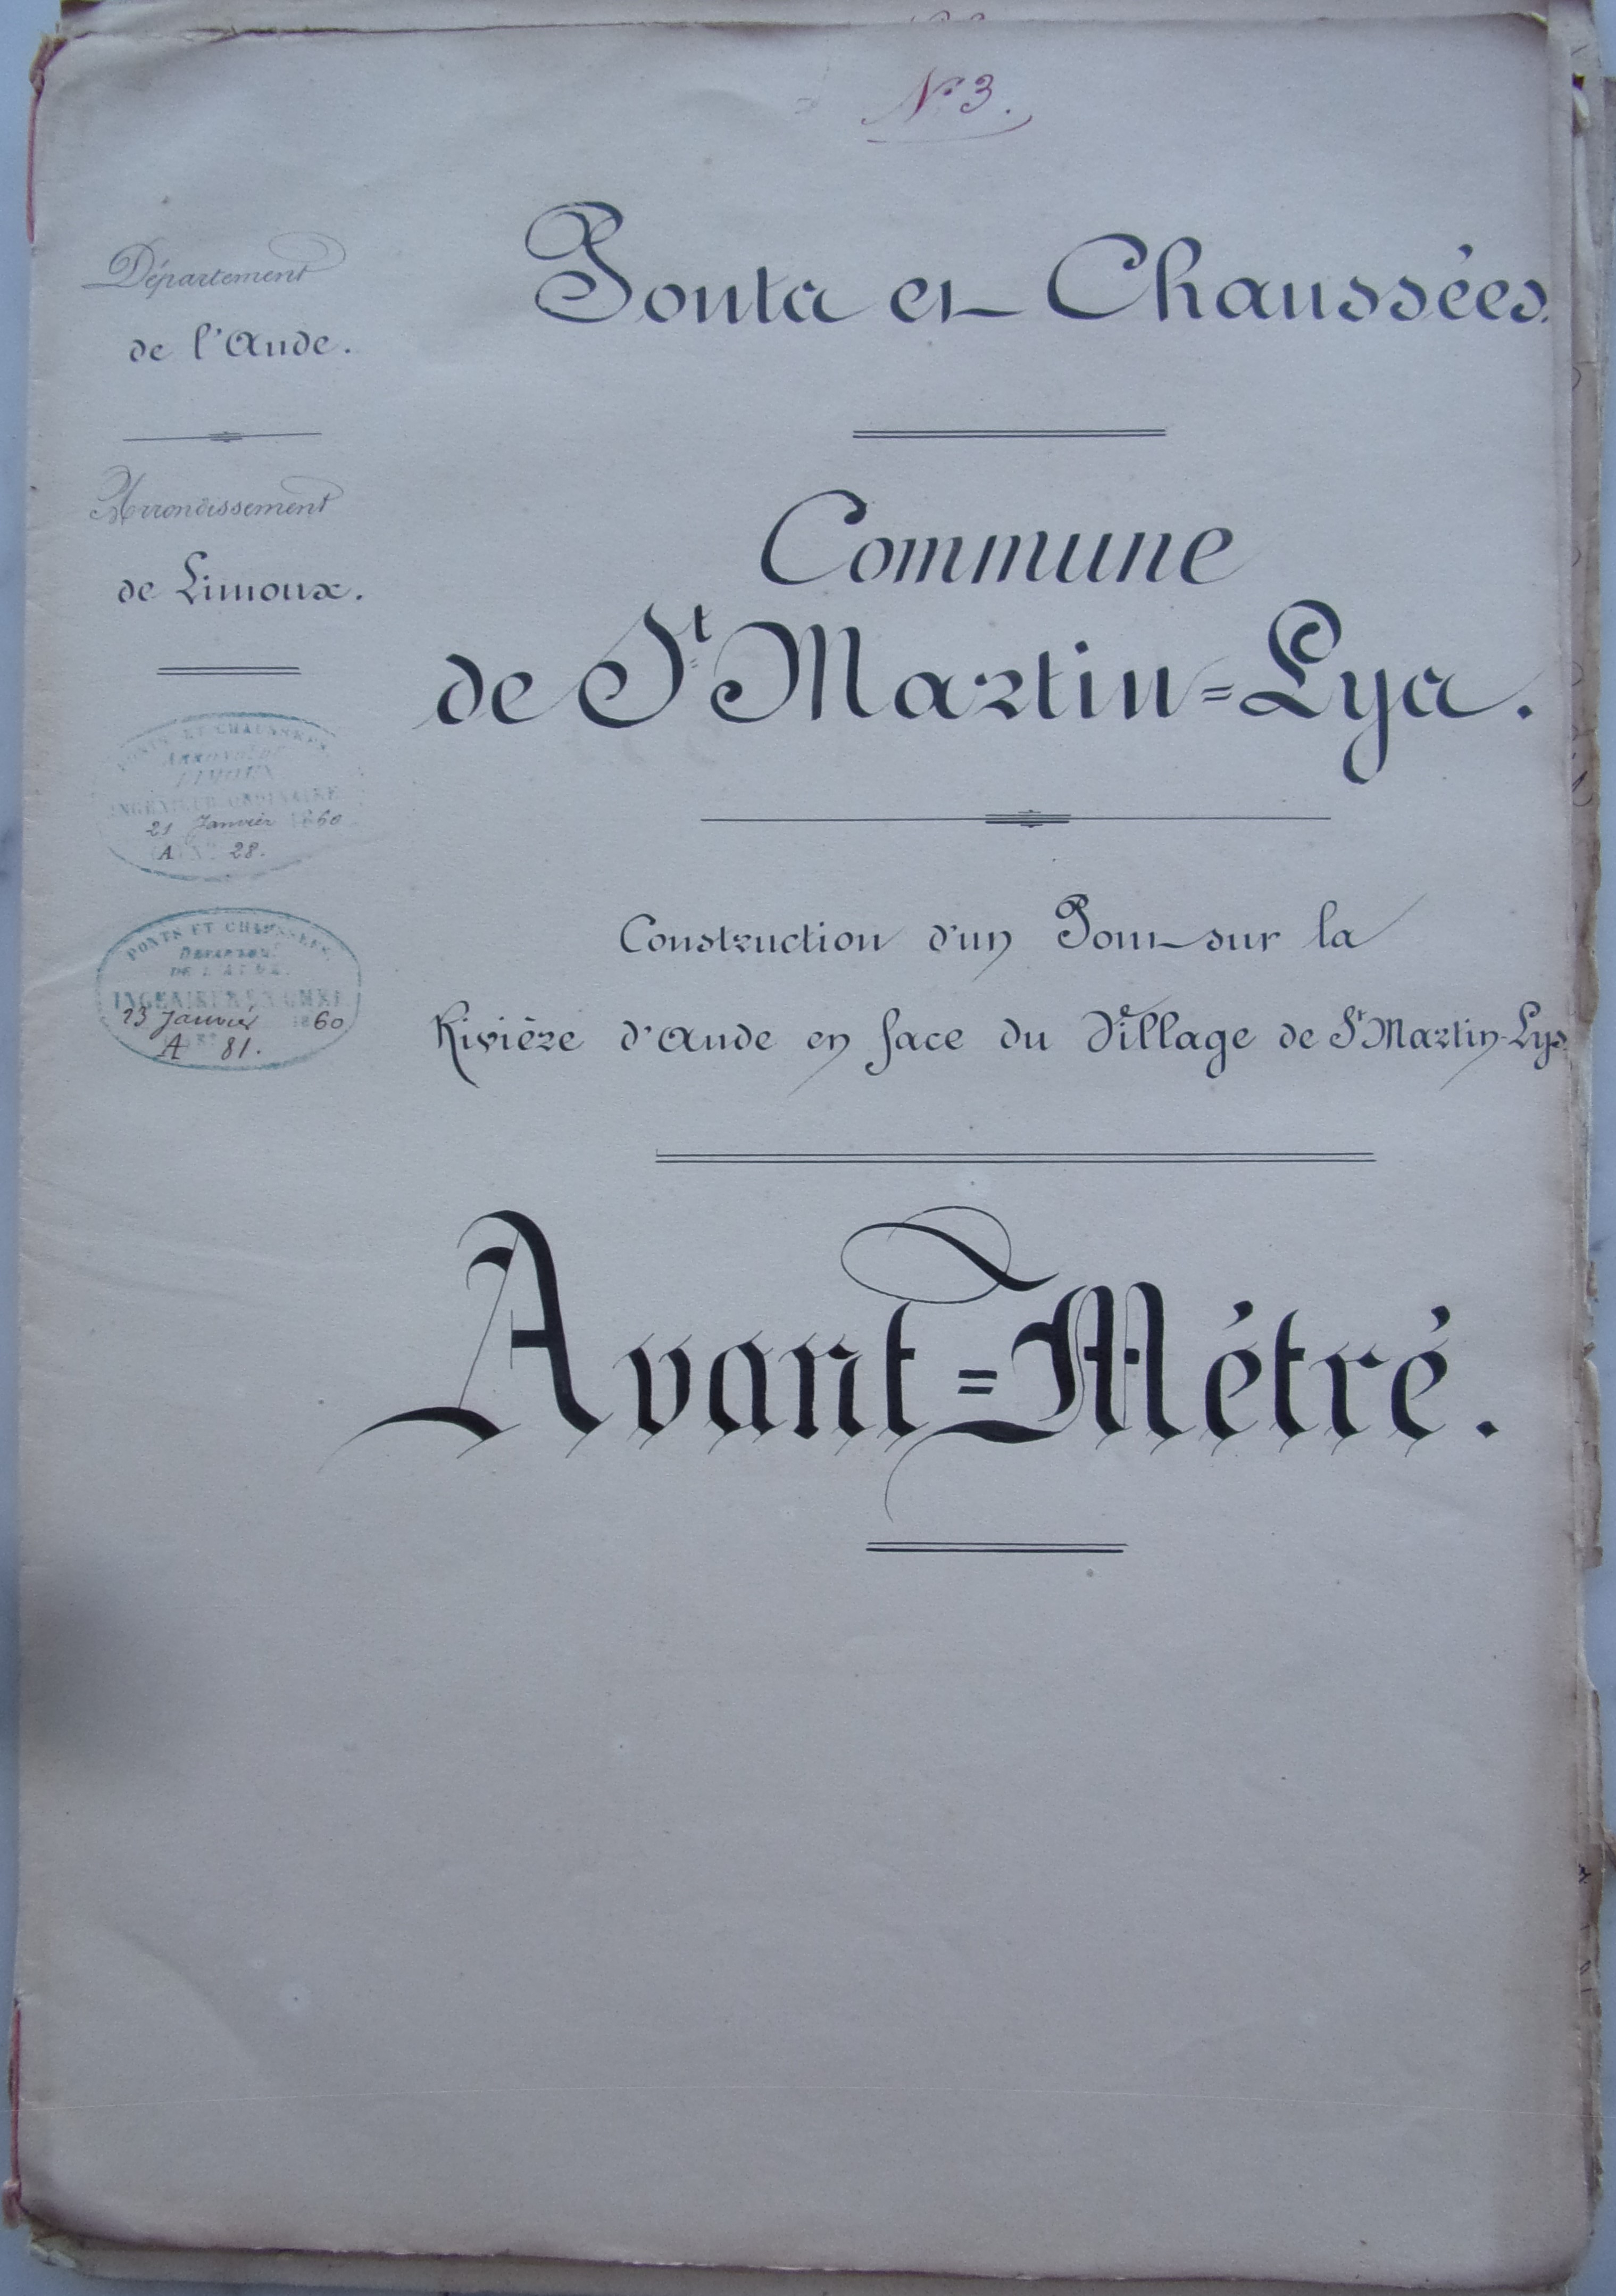 N° 3.
Département
de l'Aude.
Arrondissement
de Limoux.
PONTS ET CHAUSSÉES
ARRONDT
LIMOUX
INGÉNIEUR ORDINAIRE
21 Janvier 1860
A N° 28.
PONTS ET CHAUSSÉES
DÉPARTEMT
DE L'AUDE
INGÉNIEUR EN CHEF
23 Janvier 1860
A 81.
Ponts et Chaussées.
Commune
de St Martin=Lys.
Construction d'un Pont sur la
Rivière d'Aude en face du Village de St Martin-Lys.
Avant=Métré.